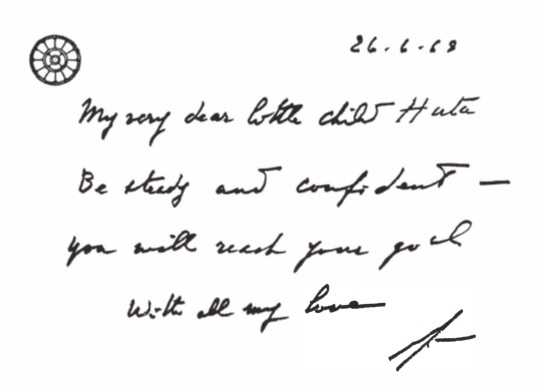 26.6.68
My very dear little child Huta
Be steady and confident —
you will reach your goal
With all my love